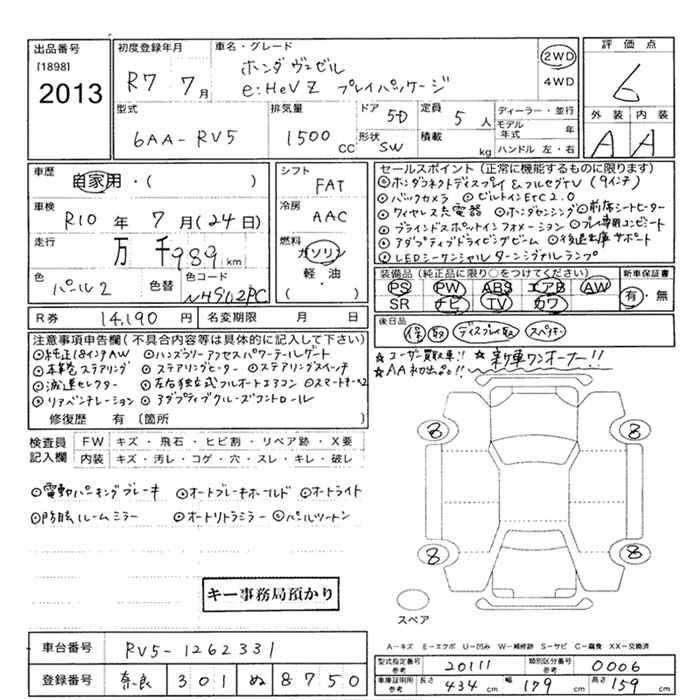 出品番号
[1898]
2013
初度登録年月
R7 7月
車名・グレード
ホンダ ヴェゼル
e:HEV Z プレイパッケージ
2WD
4WD
評価点
6
外装 内装
A A
型式
6AA-RV5
排気量
1500 CC
ドア 5D
形状 SW
定員 5 人
積載 kg
ディーラー・並行
モデル年式 年
ハンドル 左・右
車歴
自家用・( )
車検
R10年 7月(24日)
走行
万 千989km
色
パール2
色替
色コード
NH902PC
シフト
FAT
冷房
AAC
燃料
ガソリン
軽・油
( )
セールスポイント(正常に機能するものに限ります)
◎ホンダコネクトディスプレイ&フルセグTV(9インチ)
◎バックカメラ ◎ビルトインETC2.0
◎ワイヤレス充電器 ◎ホンダセンシング ◎前席シートヒーター
◎ブラインドスポットインフォメーション ◎プレイ専用コンビシート
◎アダプティブドライビングビーム ◎後退出庫サポート
◎LEDシーケンシャルターンシグナルランプ
装備品(純正品に限り○をつけてください)
PS PW ABS エアB AW
SR ナビ TV カワ
新車保証書
有・無
R券 14,190円
名変期限 月 日
後日品
保 取 ディスプレイ取 スペアキー
注意事項申告欄(不具合内容等は具体的に記入して下さい)
◎純正18インチAW ◎ハンズフリーアクセスパワーテールゲート
◎本革巻ステアリング ◎ステアリングヒーター ◎ステアリングスイッチ
◎減速セレクター ◎左右独立式フルオートエアコン ◎スマートキーx2
◎リアベンチレーション ◎アダプティブクルーズコントロール
修復歴 有 (箇所 )
★ユーザー買取車!! ★新車ワンオーナー!!
★AA初出品!!
検査員記入欄
FW キズ・飛石・ヒビ割・リペア跡・X要
内装 キズ・汚レ・コゲ・穴・スレ・キレ・破レ
◎電動パーキングブレーキ ◎オートブレーキホールド ◎オートライト
◎防眩ルームミラー ◎オートリトラミラー ◎パールツートン
8 8
8 8
キー事務局預かり
スペア
A-キズ E-エクボ U-凹み W-補修跡 S-サビ C-腐食 XX-交換済
車台番号 RV5-1262331
登録番号 奈良 301 ぬ 8750
型式指定番号 参考 20111
類別区分番号 参考 0006
車庫証明用 参考 長さ 434 cm 幅 179 cm 高さ 159 cm